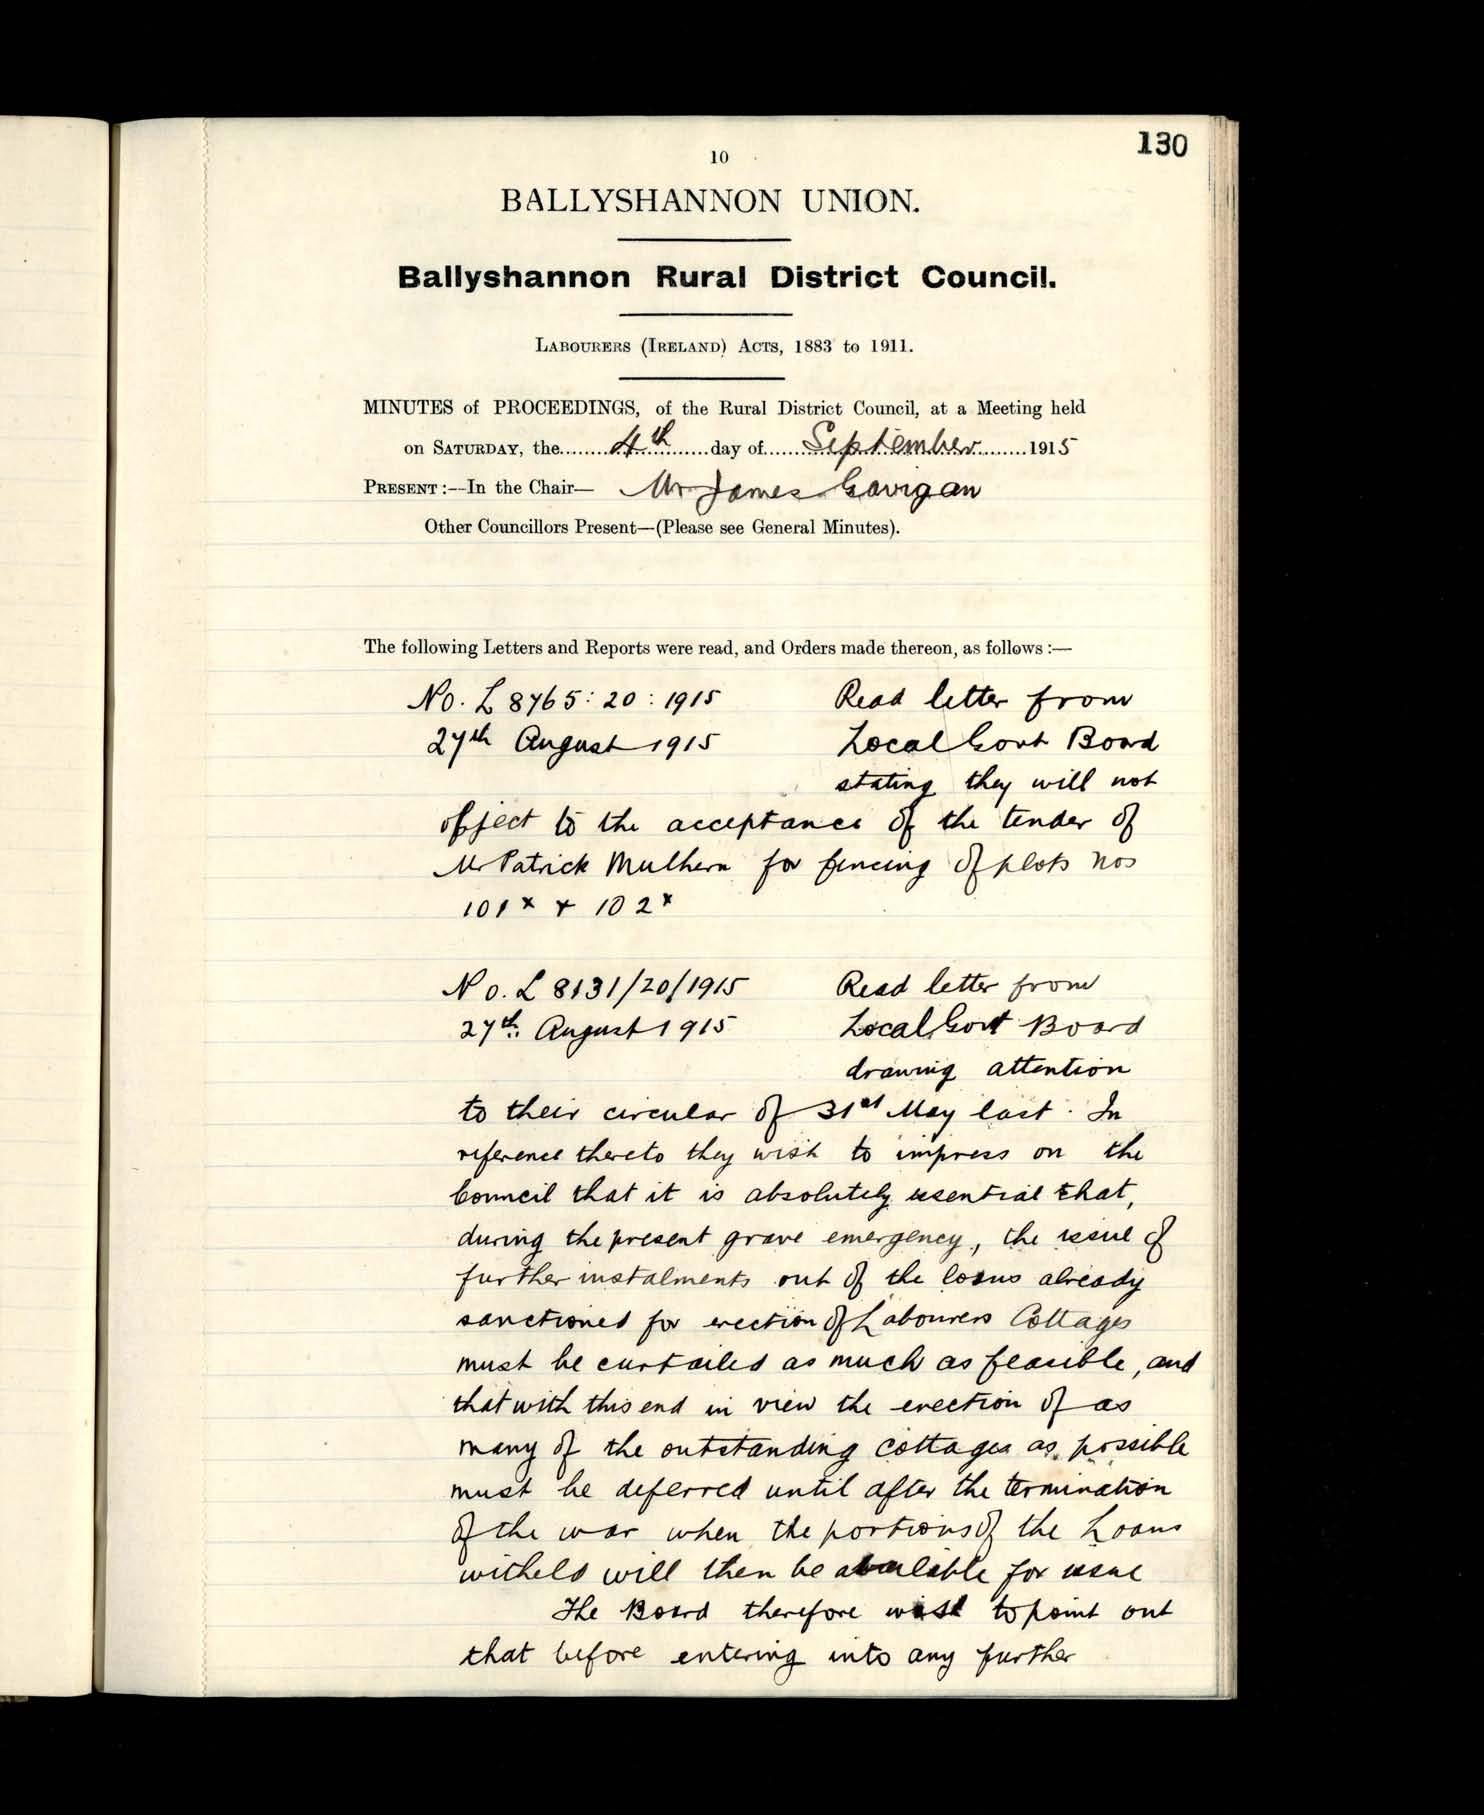 130
10
BALLYSHANNON UNION.
Ballyshannon Rural District Council.
LABOURERS (IRELAND) ACTS, 1883 to 1911.
MINUTES of PROCEEDINGS, of the Rural District Council, at a Meeting held
on SATURDAY, the........4th........day of......September......1915
PRESENT:—In the Chair— Mr James Gavigan
Other Councillors Present—(Please see General Minutes).
The following Letters and Reports were read, and Orders made thereon, as follows:—
No. L 8765:20:1915 Read letter from
27th August 1915 Local Govt Board
stating they will not
object to the acceptance of the tender of
Mr Patrick Mulhern for fencing of plots nos
101x + 102x
No. L 8131/20/1915 Read letter from
27th August 1915 Local Govt Board
drawing attention
to their circular of 31st May last. In
reference thereto they wish to impress on the
Council that it is absolutely essential that,
during the present grave emergency, the issue of
further instalments out of the loans already
sanctioned for erection of Labourers Cottages
must be curtailed as much as feasible, and
that with this end in view the erection of as
many of the outstanding cottages as possible
must be deferred until after the termination
of the war when the portions of the Loans
witheld will then be available for issue
The Board therefore wish to point out
that before entering into any further